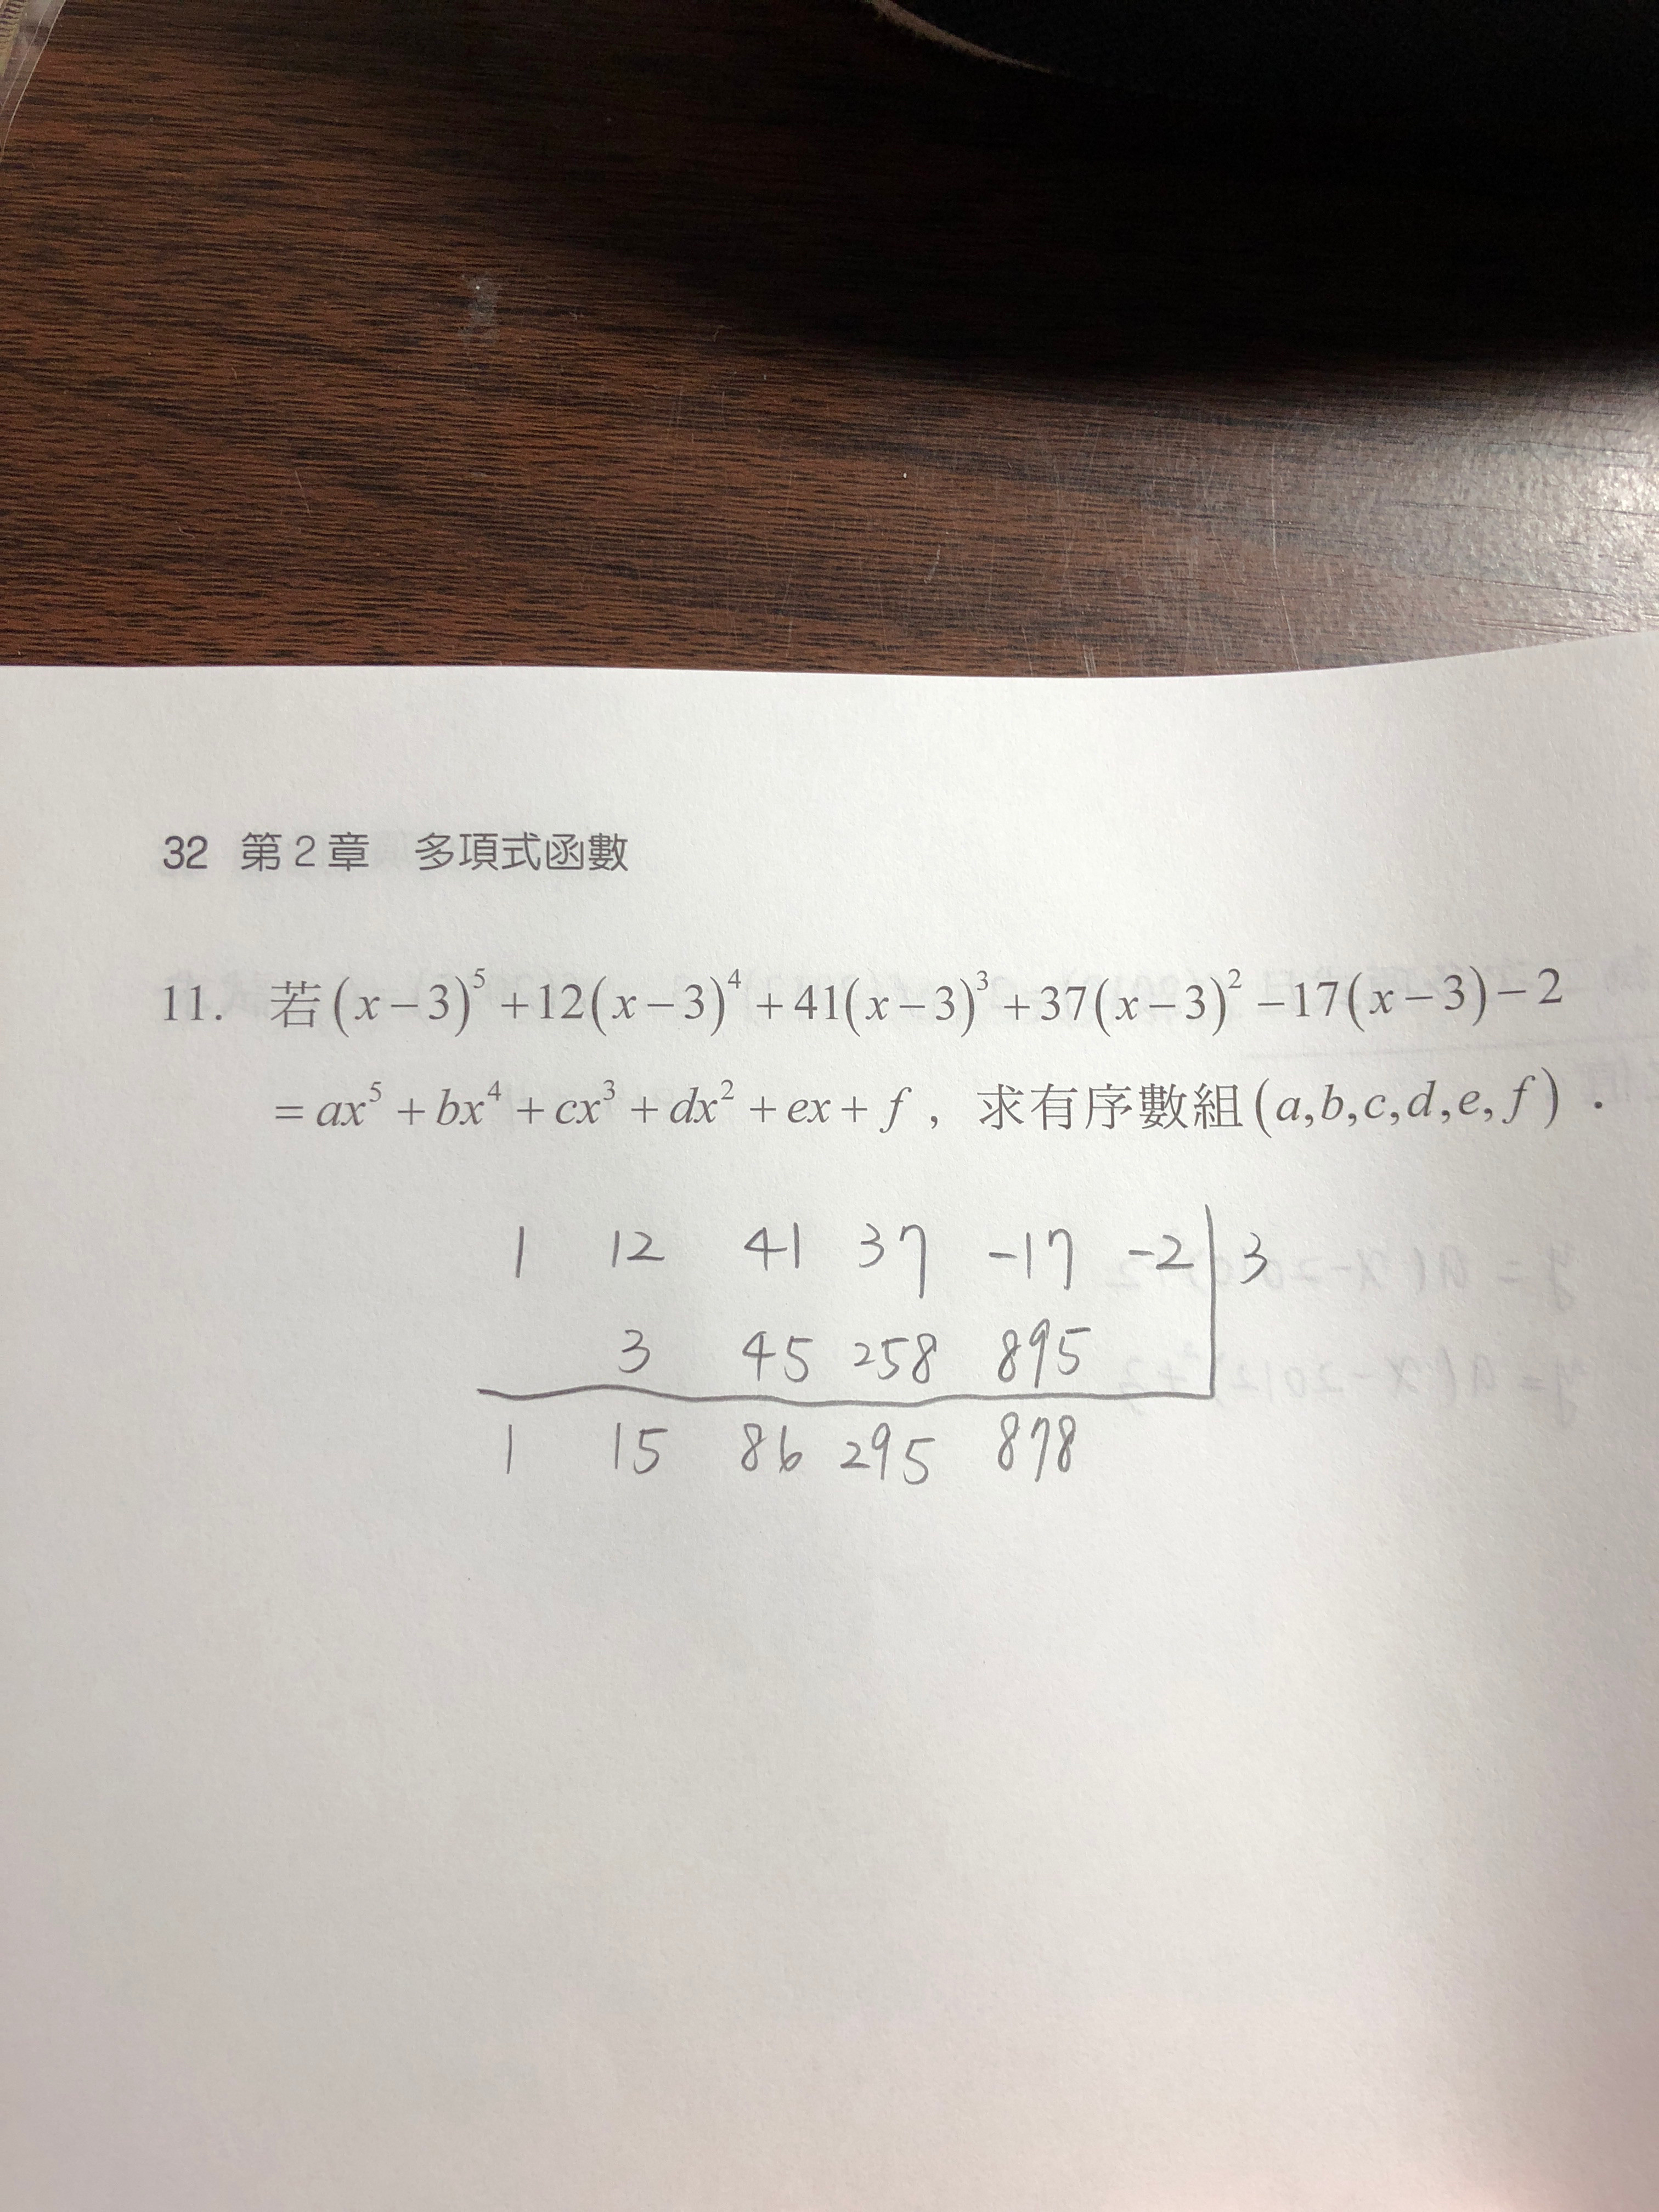 32 第2章 多項式函數
11. 若(x−3)⁵+12(x−3)⁴+41(x−3)³+37(x−3)²−17(x−3)−2
=ax⁵+bx⁴+cx³+dx²+ex+f，求有序數組(a,b,c,d,e,f)．
1 12 41 37 -17 -2 3
3 45 258 895
1 15 86 295 878